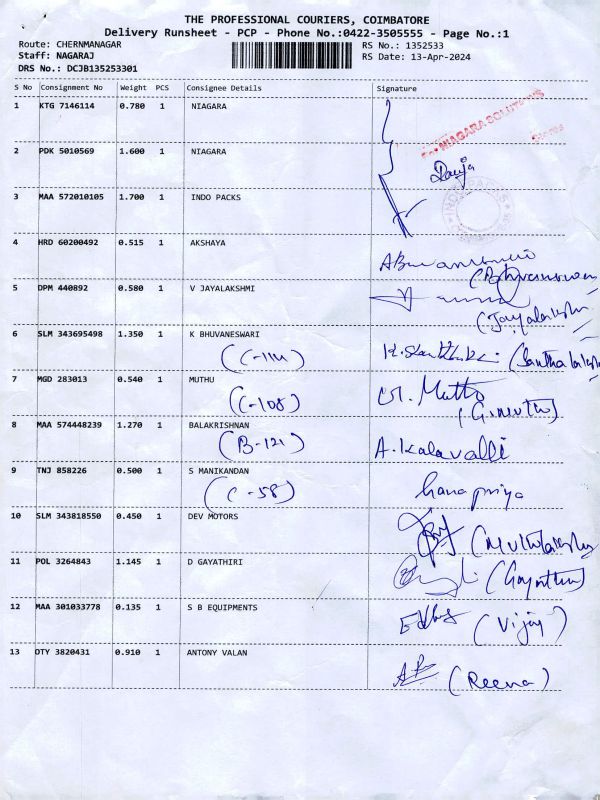 THE PROFESSIONAL COURIERS, COIMBATORE
Delivery Runsheet - PCP - Phone No.:0422-3505555 - Page No.:1
Route: CHERNMANAGAR RS No.: 1352533
Staff: NAGARAJ RS Date: 13-Apr-2024
DRS No.: DCJB135253301
S No Consignment No Weight PCS Consignee Details Signature
1 KTG 7146114 0.780 1 NIAGARA
For NIAGARA SOLUTIONS
Stores
2 PDK 5010569 1.600 1 NIAGARA
3 MAA 572010105 1.700 1 INDO PACKS
4 HRD 60200492 0.515 1 AKSHAYA
5 DPM 440892 0.580 1 V JAYALAKSHMI
6 SLM 343695498 1.350 1 K BHUVANESWARI
(C-114)
7 MGD 283013 0.540 1 MUTHU
(C-108) (G.Muthu)
8 MAA 574448239 1.270 1 BALAKRISHNAN
(B-121) A. Kalavalli
9 TNJ 858226 0.500 1 S MANIKANDAN
(C-58) hanapriya
10 SLM 343818550 0.450 1 DEV MOTORS
11 POL 3264843 1.145 1 D GAYATHIRI
12 MAA 301033778 0.135 1 S B EQUIPMENTS
(Vijay)
13 OTY 3820431 0.910 1 ANTONY VALAN
(Reena)